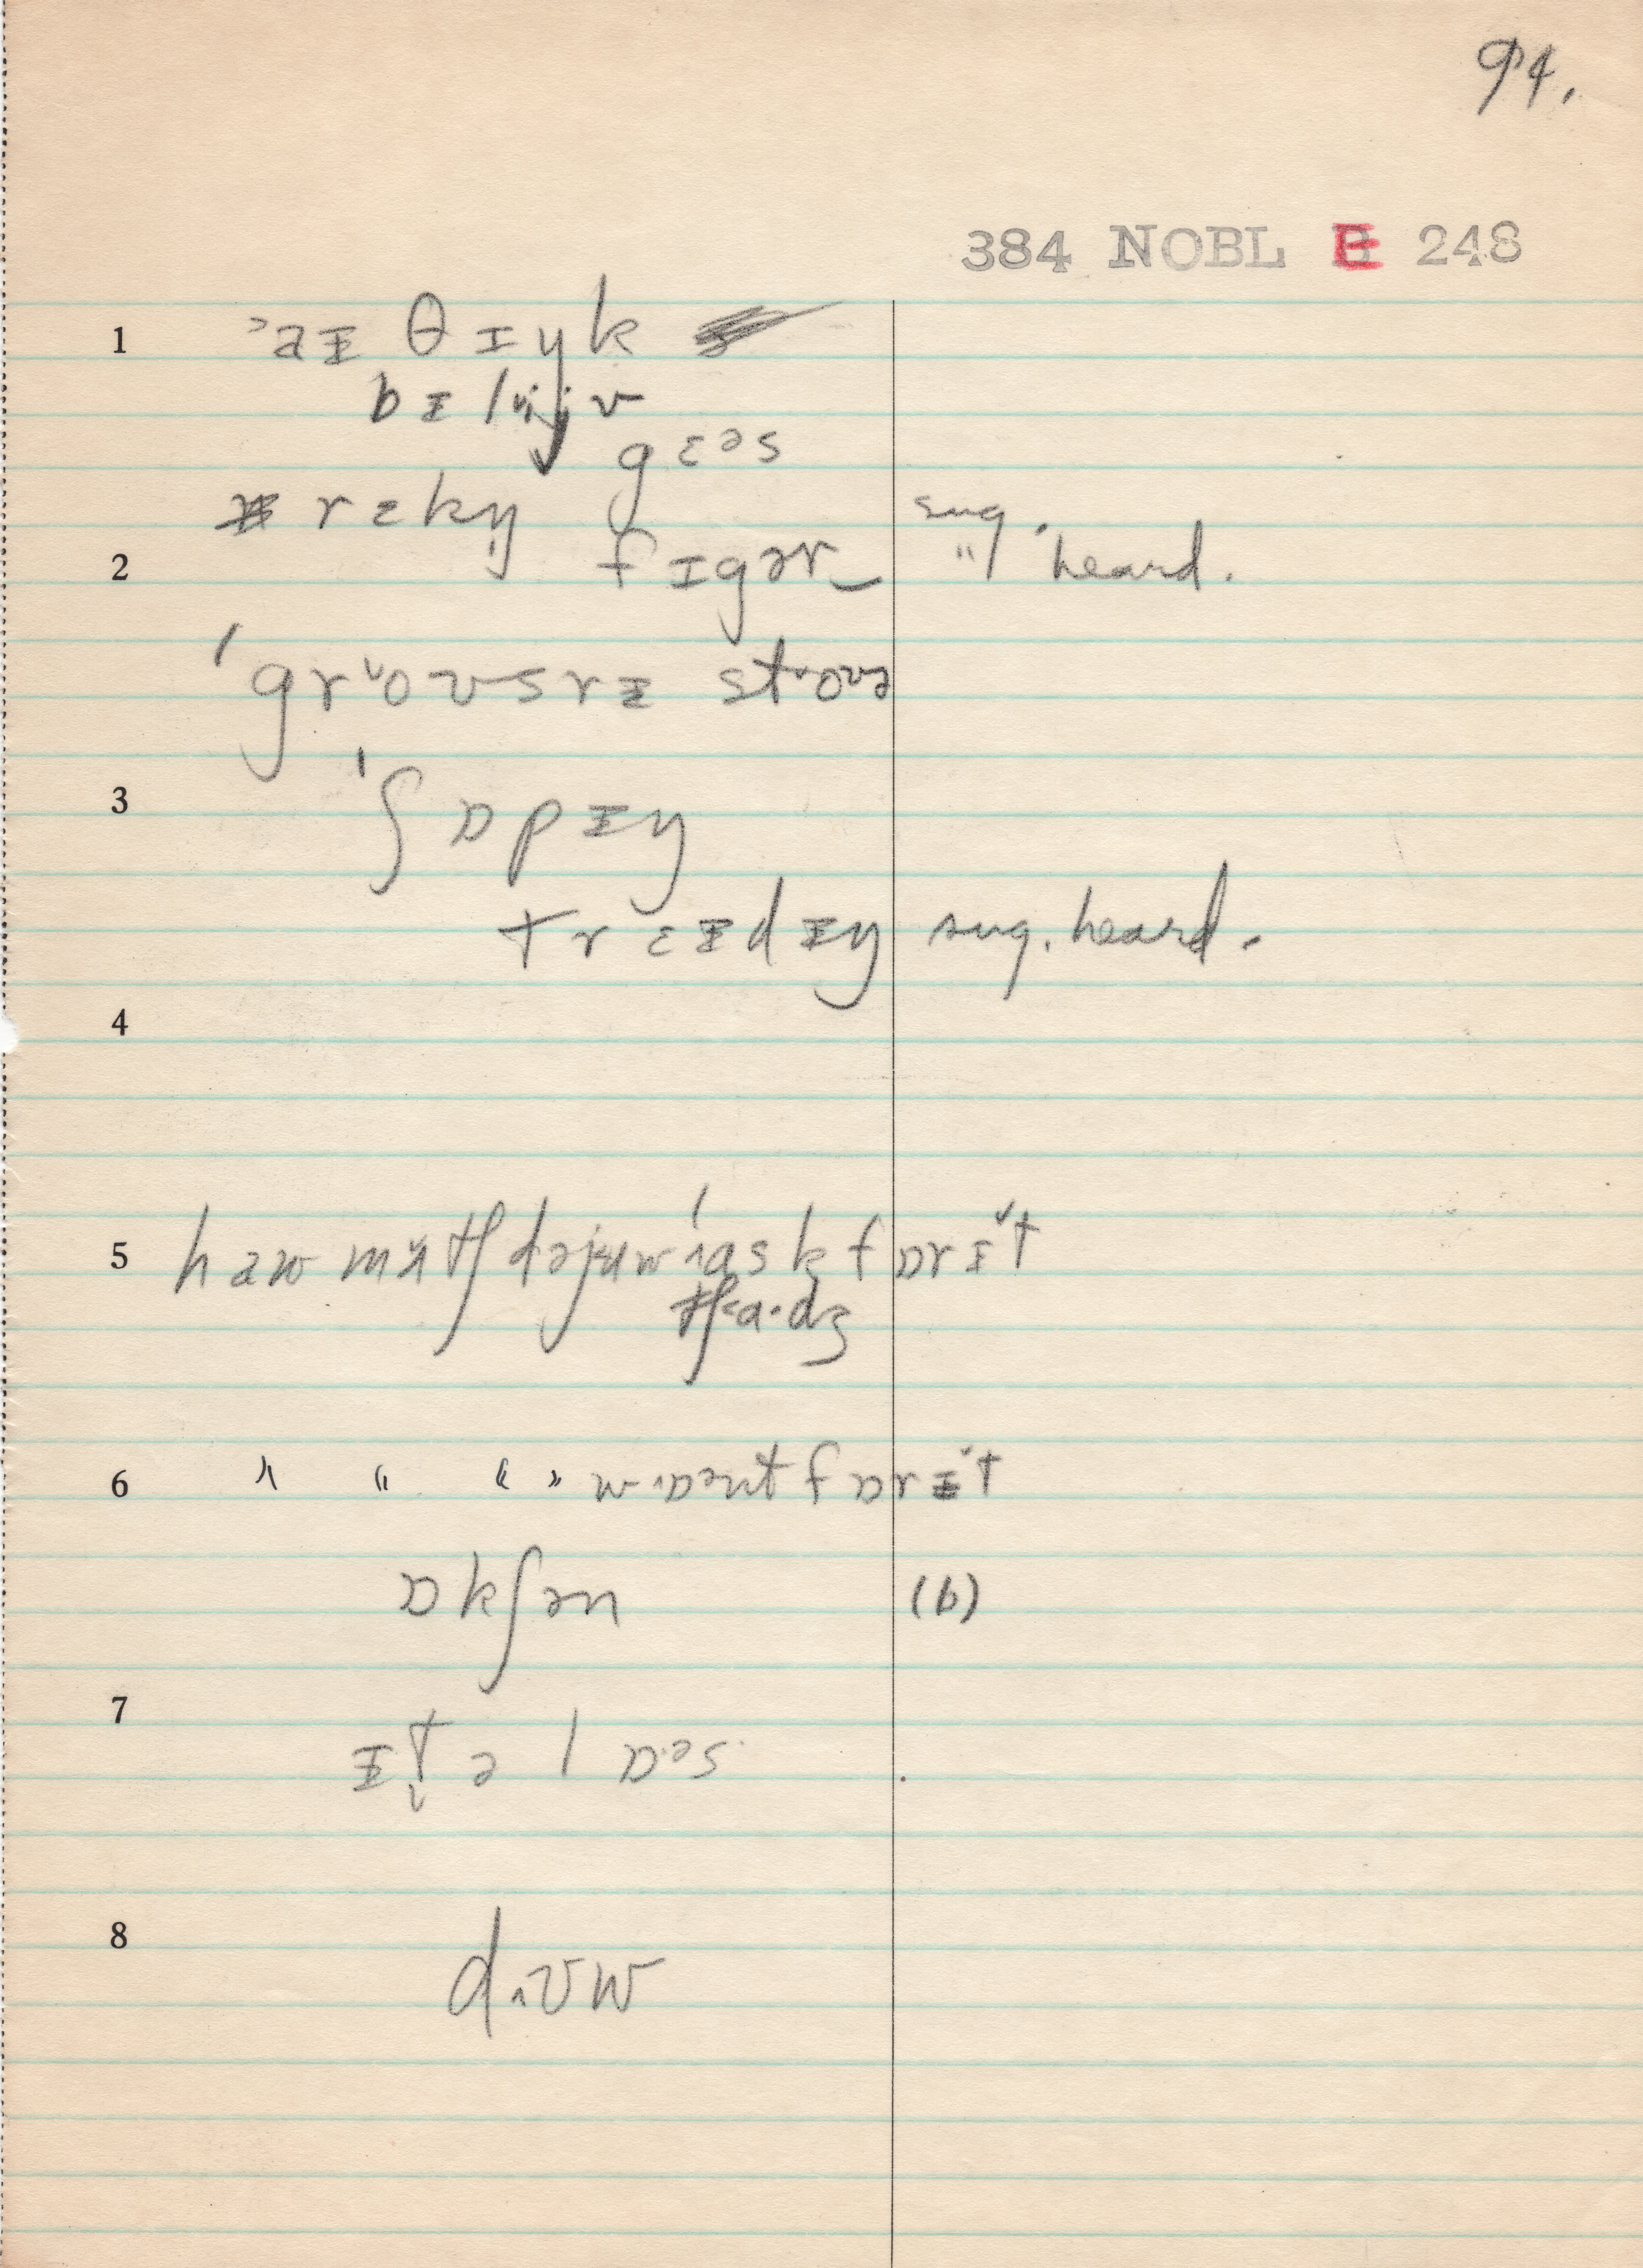 94.
384 NOBL E 248
1 ˃aɪ θɪŋk
bɪliˑjv
gɛəs
rɛkŋ̩ sug.
2 fɪgər " heard.
ˈgr˅oʊsrɪ st˅oʊə
3 ˈʃɒpɪŋ
trɛɪdɪŋ sug. heard.
4
5 haw mʌtʃ dəjuw ˈask fɒr ɪt
tʃ˂a·dʒ
6 " " " " wɒənt fɒr ɪt
ɒkʃən (b)
7 ɪt̬əlɒəs
8 d˄ʊw